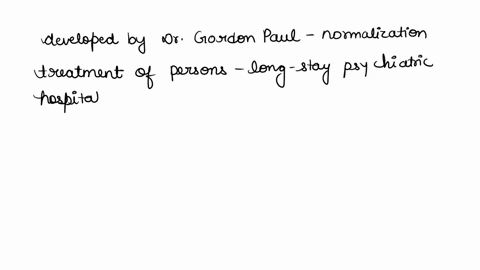 developed by Dr. Gordon Paul - normalization
treatment of persons - long-stay psychiatric
hospita